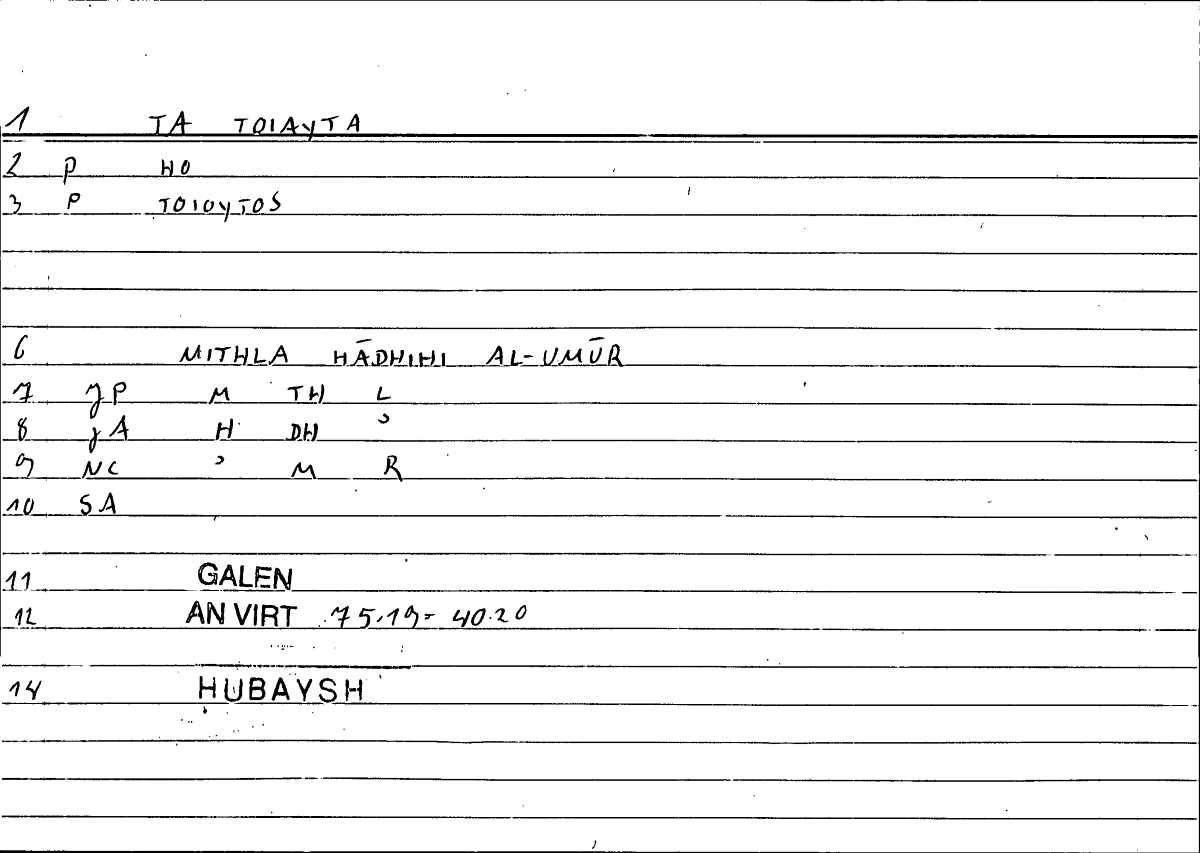 1 TA TOIAYTA
2 P HO
3 P TOIOYTOS
6 MITHLA HĀDHIHI AL-UMŪR
7 JP M TH L
8 JA H DH ʾ
9 NC ʾ M R
10 SA
11 GALEN
12 AN VIRT 75.19= 40.20
14 HUBAYSH